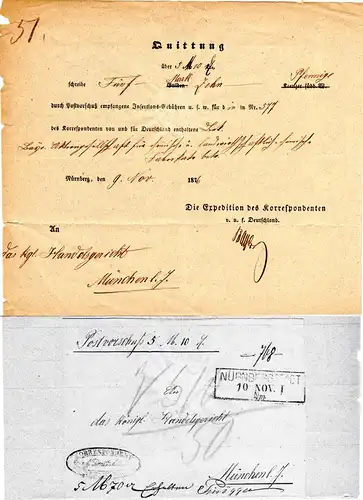 51.
Quittung
über 5 M 10 Pf
schreibe Fünf Mark Zehn Pfennige
Gulden Kreuzer südd. W.
durch Postvorschuß empfangene Insertions-Gebühren u. s. w. für d in Nr. 577
des Korrespondenten von und für Deutschland enthaltene
Bayr. Aktiengesellschaft für chemische u. landwirthschaftlich chemische
Fabrikate betr.
Nürnberg, den 9. Nov. 1876
Die Expedition des Korrespondenten
v. u. f. Deutschland.
An
das Kgl. Handelsgericht
München l. J.
Postvorschuß 5 M. 10 Pf
768
NÜRNBERG STADT
10 NOV. I
An
das Königl. Handelsgericht
München l. J.
5 M 70 erhalten